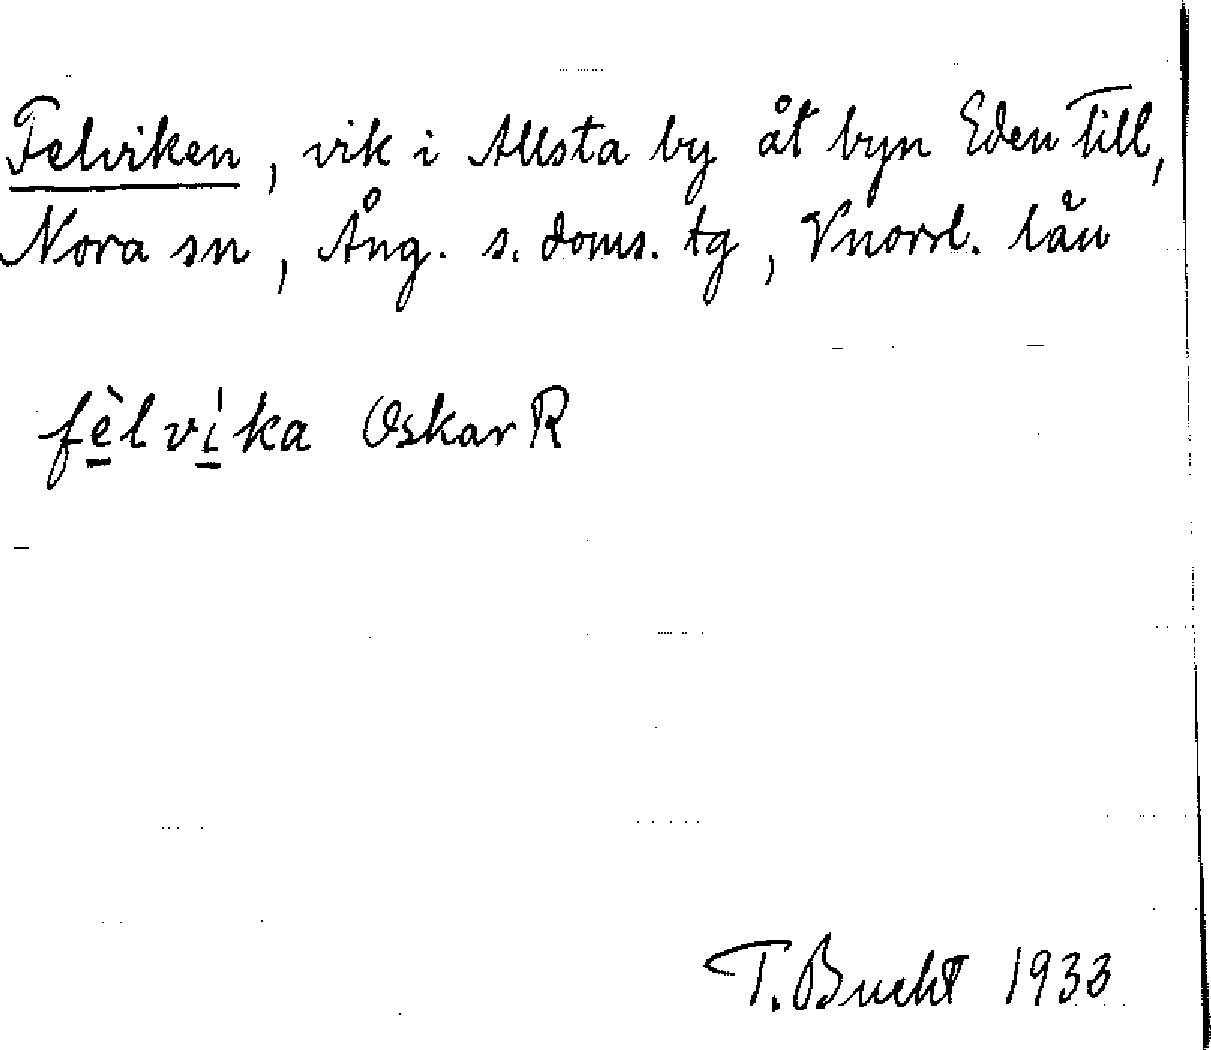 Felviken, vik i Allsta by åt byn Eden till,
Nora sn, Ång. s. doms. tg, Vnorrl. län
fèlvíka Oskar R
T. Bucht 1933